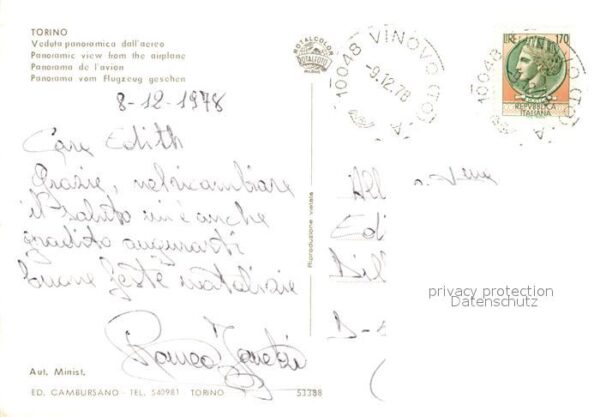 TORINO
Veduta panoramica dall'aereo
Panoramic view from the airplane
Panorama de l'avion
Panorama vom Flugzeug gesehen
8-12-1978
Cara Edith
Grazie, nel ricambiare
il saluto mi è anche
gradito augurarti
buone feste natalizie
Romeo
Aut. Minist.
ED. CAMBURSANO - TEL. 540981 - TORINO
53388
ROTALCOLOR
ROTALFOTO
MILANO
Riproduzione vietata
10048 VINOVO (TO)
-9.12.78
10048 VINOVO (TO)
LIRE 170
REPVBBLICA
ITALIANA
All
Edi
Dill
D-
privacy protection
Datenschutz